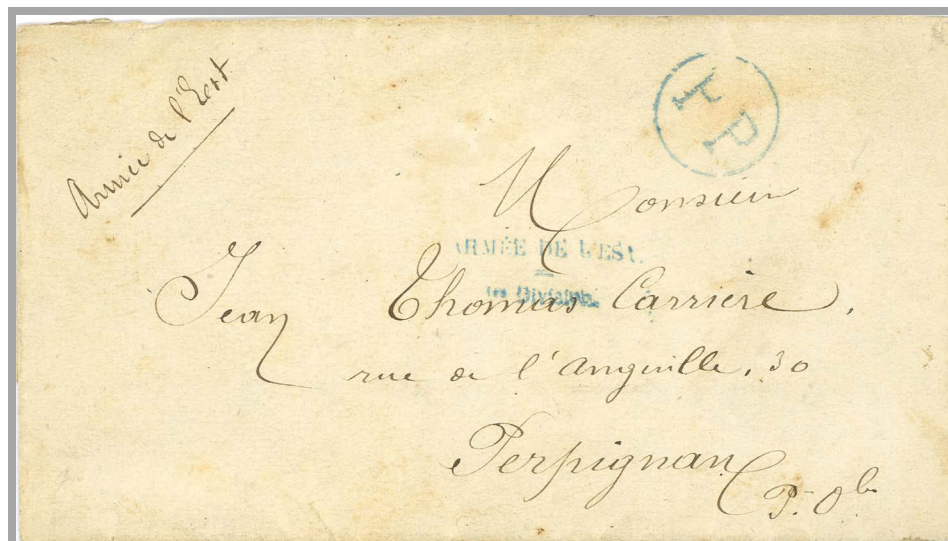 Armée de l'Est
PP
Monsieur
ARMÉE DE L'EST.
1re Division.
Jean Thomas Carrière,
rue de l'Anguille, 30
Perpignan
P. Ol.